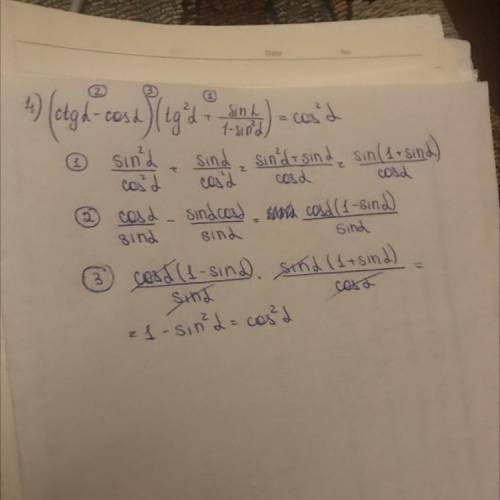 Date No
② ③ ①
4) (ctgα - cosα)(tg²α + sinα/(1-sin²α)) = cos²α
① sin²α/cos²α + sinα/cos²α = (sin²α+sinα)/cosα = sin(1+sinα)/cosα
② cosα/sinα - sinαcosα/sinα = cosα(1-sinα)/sinα
③ cosα(1-sinα)/sinα · sinα(1+sinα)/cosα =
= 1 - sin²α = cos²α